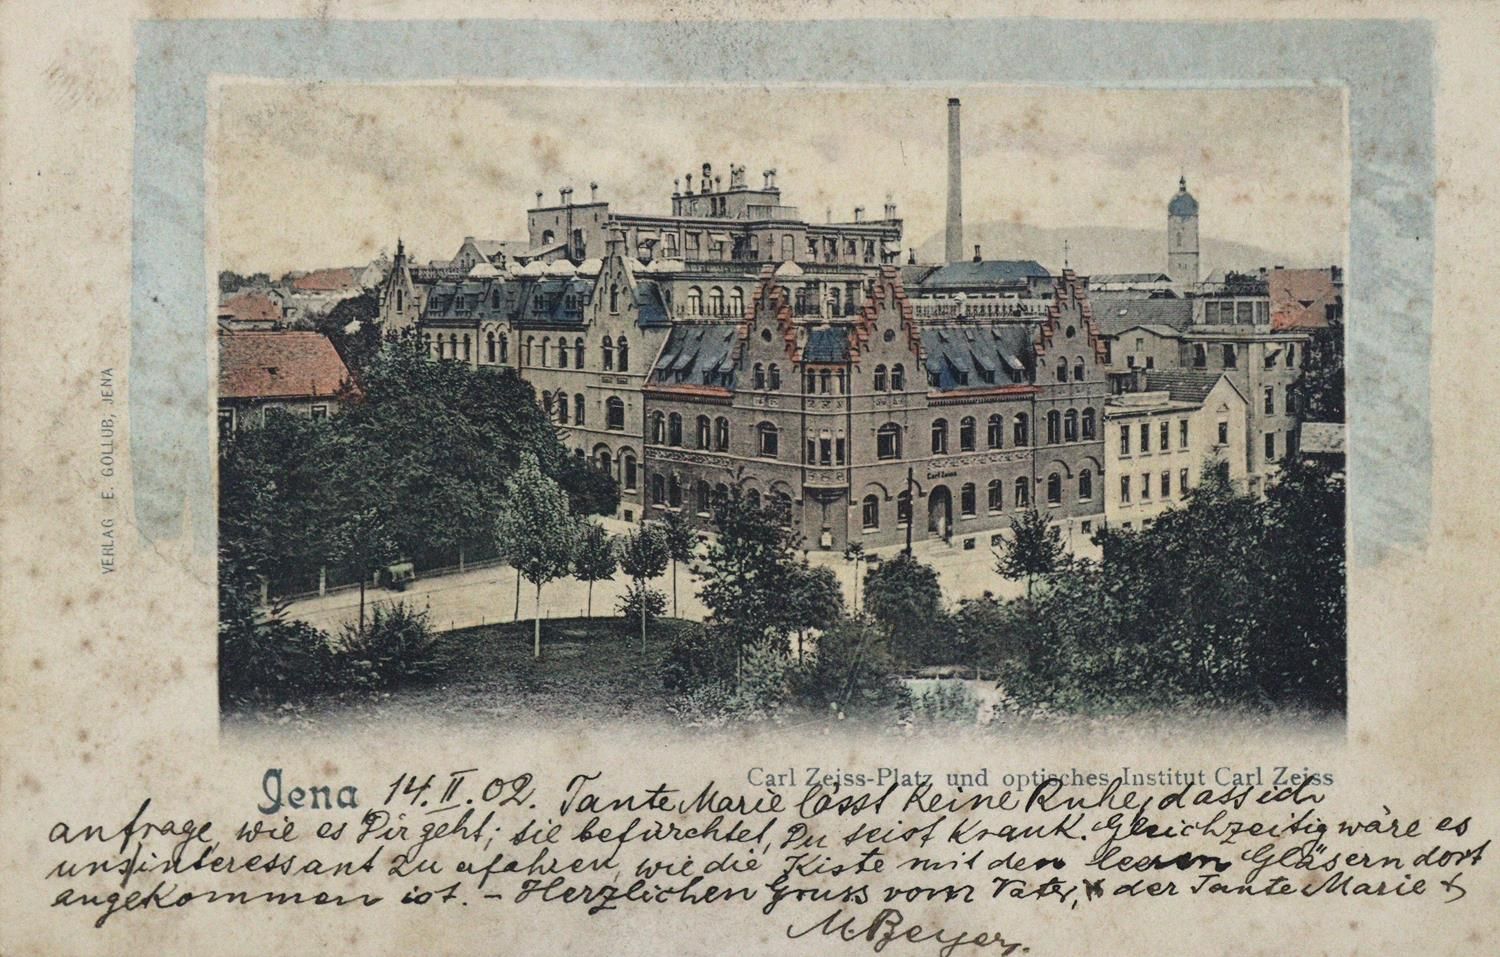 VERLAG E. GOLLUB, JENA
Carl Zeiss
Carl Zeiss-Platz und optisches Institut Carl Zeiss
Jena 14. II. 02. Tante Marie lässt keine Ruhe, dass ich
anfrage, wie es Dir geht; sie befürchtet, Du seist krank. Gleichzeitig wäre es
uns interessant zu erfahren, wie die Kiste mit den leeren Gläsern dort
angekommen ist. – Herzlichen Gruss vom Vater, der Tante Marie &
M. Beyer.